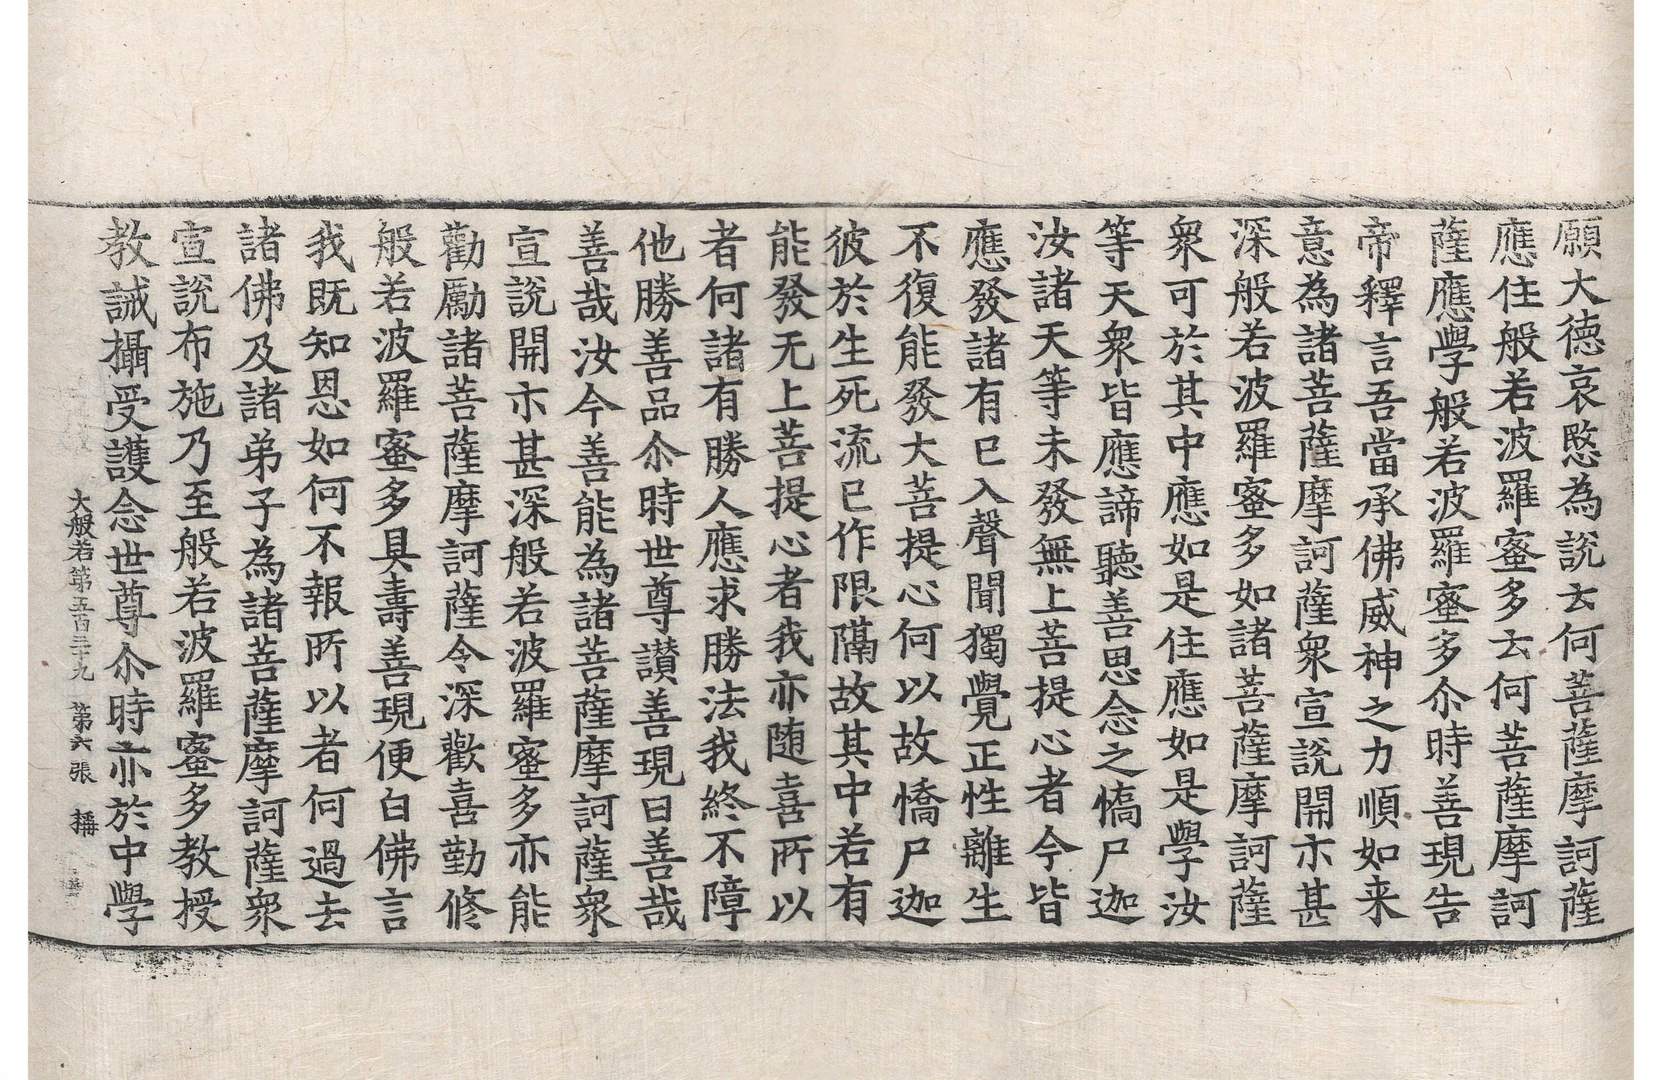 願大德哀愍為說云何菩薩摩訶薩
應住般若波羅蜜多云何菩薩摩訶
薩應學般若波羅蜜多尒時善現告
帝釋言吾當承佛威神之力順如来
意為諸菩薩摩訶薩衆宣說開示甚
深般若波羅蜜多如諸菩薩摩訶薩
衆可於其中應如是住應如是學汝
等天衆皆應諦聽善思念之憍尸迦
汝諸天等未發無上菩提心者今皆
應發諸有已入聲聞獨覺正性離生
不復能發大菩提心何以故憍尸迦
彼於生死流已作限隔故其中若有
能發无上菩提心者我亦随喜所以
者何諸有勝人應求勝法我終不障
他勝善品尒時世尊讃善現曰善哉
善哉汝今善能為諸菩薩摩訶薩衆
宣說開示甚深般若波羅蜜多亦能
勸勵諸菩薩摩訶薩令深歡喜勤修
般若波羅蜜多具壽善現便白佛言
我既知恩如何不報所以者何過去
諸佛及諸弟子為諸菩薩摩訶薩衆
宣說布施乃至般若波羅蜜多教授
教誡攝受護念世尊尒時亦於中學
大般若第五百三十九　第六張　稱